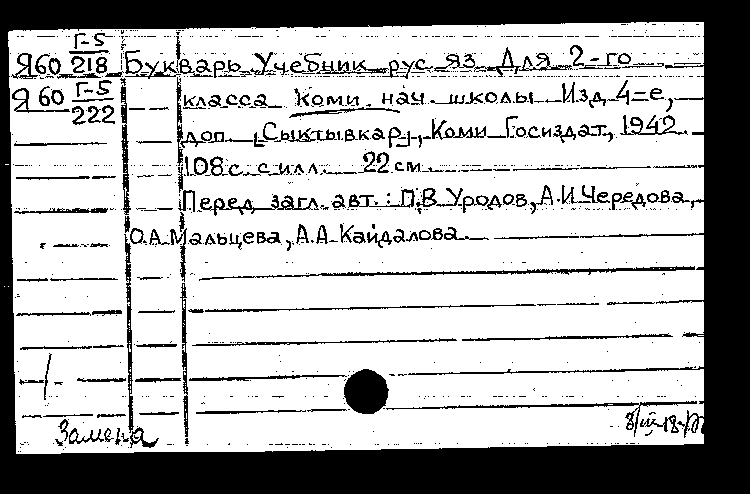 Я60 Г-5/218 Букварь. Учебник рус. яз. Для 2-го
Я60 Г-5/222 класса Коми нач. школы. Изд. 4-е,
доп. [Сыктывкар], Коми Госиздат, 1942.
108 с. с илл. 22 см.
Перед загл. авт.: П.В. Уродов, А.И. Чередова,
О.А. Мальцева, А.А. Кайдалова.
Замена